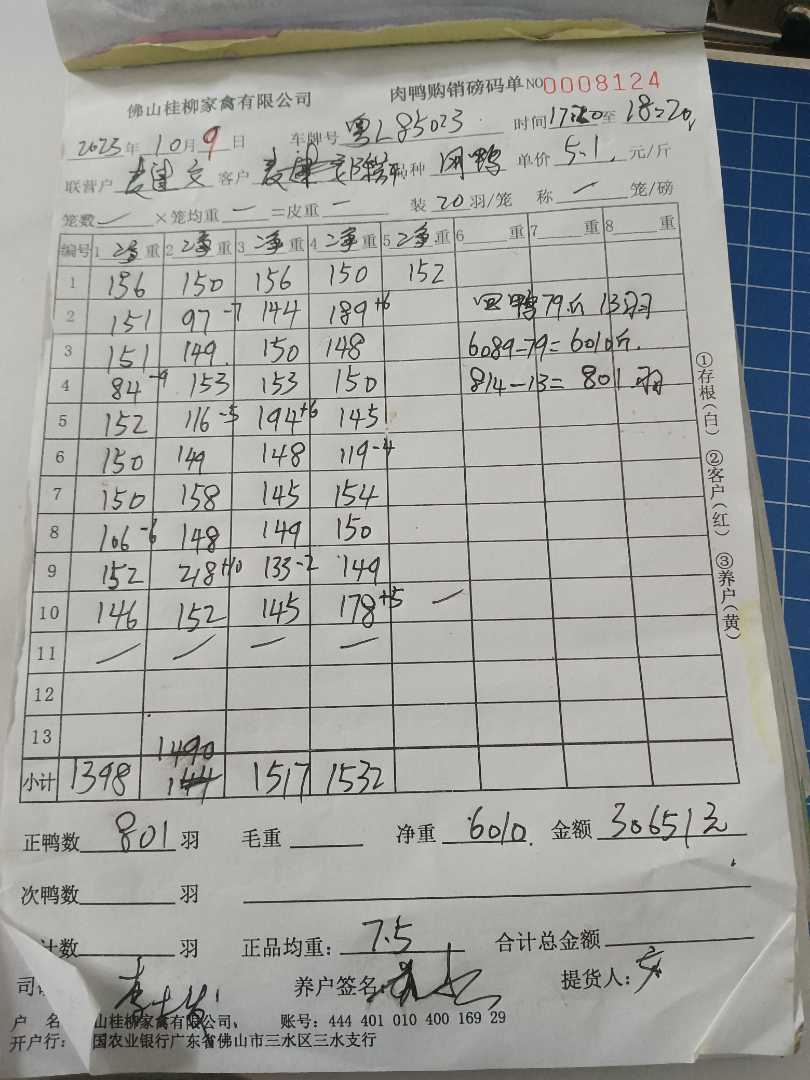 佛山桂柳家禽有限公司 肉鸭购销磅码单 NO 0008124
2023年10月9日 车牌号 粤L85023 时间 至 18:20
联营户 客户 品种 肉鸭 单价 5.1 元/斤
笼数 — ×笼均重 — =皮重 — 装 20 羽/笼 称 — 笼/磅
编号 1 净重 2 净重 3 净重 4 净重 5 净重 6 重 7 重 8 重
1 156 150 156 150 152
2 151 97-7 144 189+6 鸭79斤 13羽
3 151 149 150 148 6089-79=6010斤.
4 84-9 153 153 150 814-13=801羽
5 152 116-5 194+6 145
6 150 149 148 119-4
7 150 158 145 154
8 106-6 148 149 150
9 152 218+10 133-2 149
10 146 152 145 178+5 —
11 — — — —
12
13
1490
小计 1398 1517 1532
正鸭数 801 羽 毛重 净重 6010. 金额 30651元
次鸭数 羽
计数 羽 正品均重: 7.5 合计总金额
司 养户签名: 提货人:
户 名 山桂柳家禽有限公司 账号: 444 401 010 400 169 29
开户行: 国农业银行广东省佛山市三水区三水支行
①存根(白) ②客户(红) ③养户(黄)